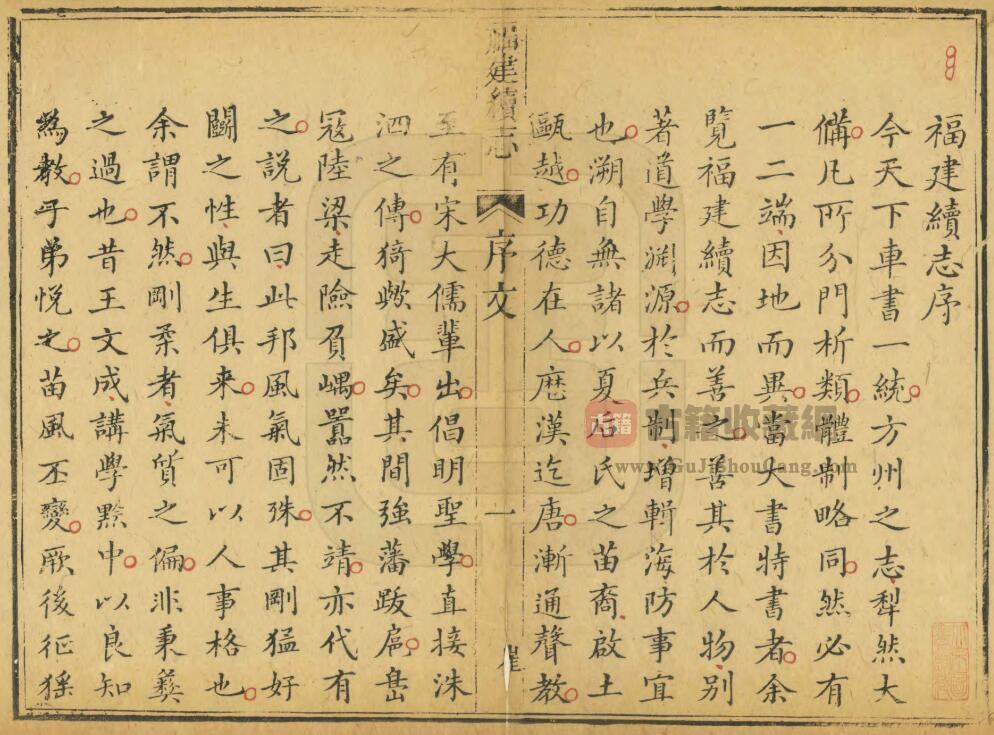 福建續志序
今天下車書一統方州之志犁然大
備凡所分門析類體制略同然必有
一二端因地而異當大書特書者余
覽福建續志而善之善其於人物別
著道學淵源於兵制增輯海防事宜
也溯自無諸以夏后氏之苗裔啟土
甌越功德在人歷漢迄唐漸通聲教
福建續志 序文 一
至有宋大儒輩出倡明聖學直接洙
泗之傳猗歟盛矣其間強藩跋扈島
寇陸梁走險負嵎嚚然不靖亦代有
之說者曰此邦風氣固殊其剛猛好
鬭之性與生俱來未可以人事格也
余謂不然剛柔者氣質之偏非秉彝
之過也昔王文成講學黔中以良知
為教子弟悅之苗風丕變厥後征猺
古籍 古籍收藏網
www.GuJiShouCang.com